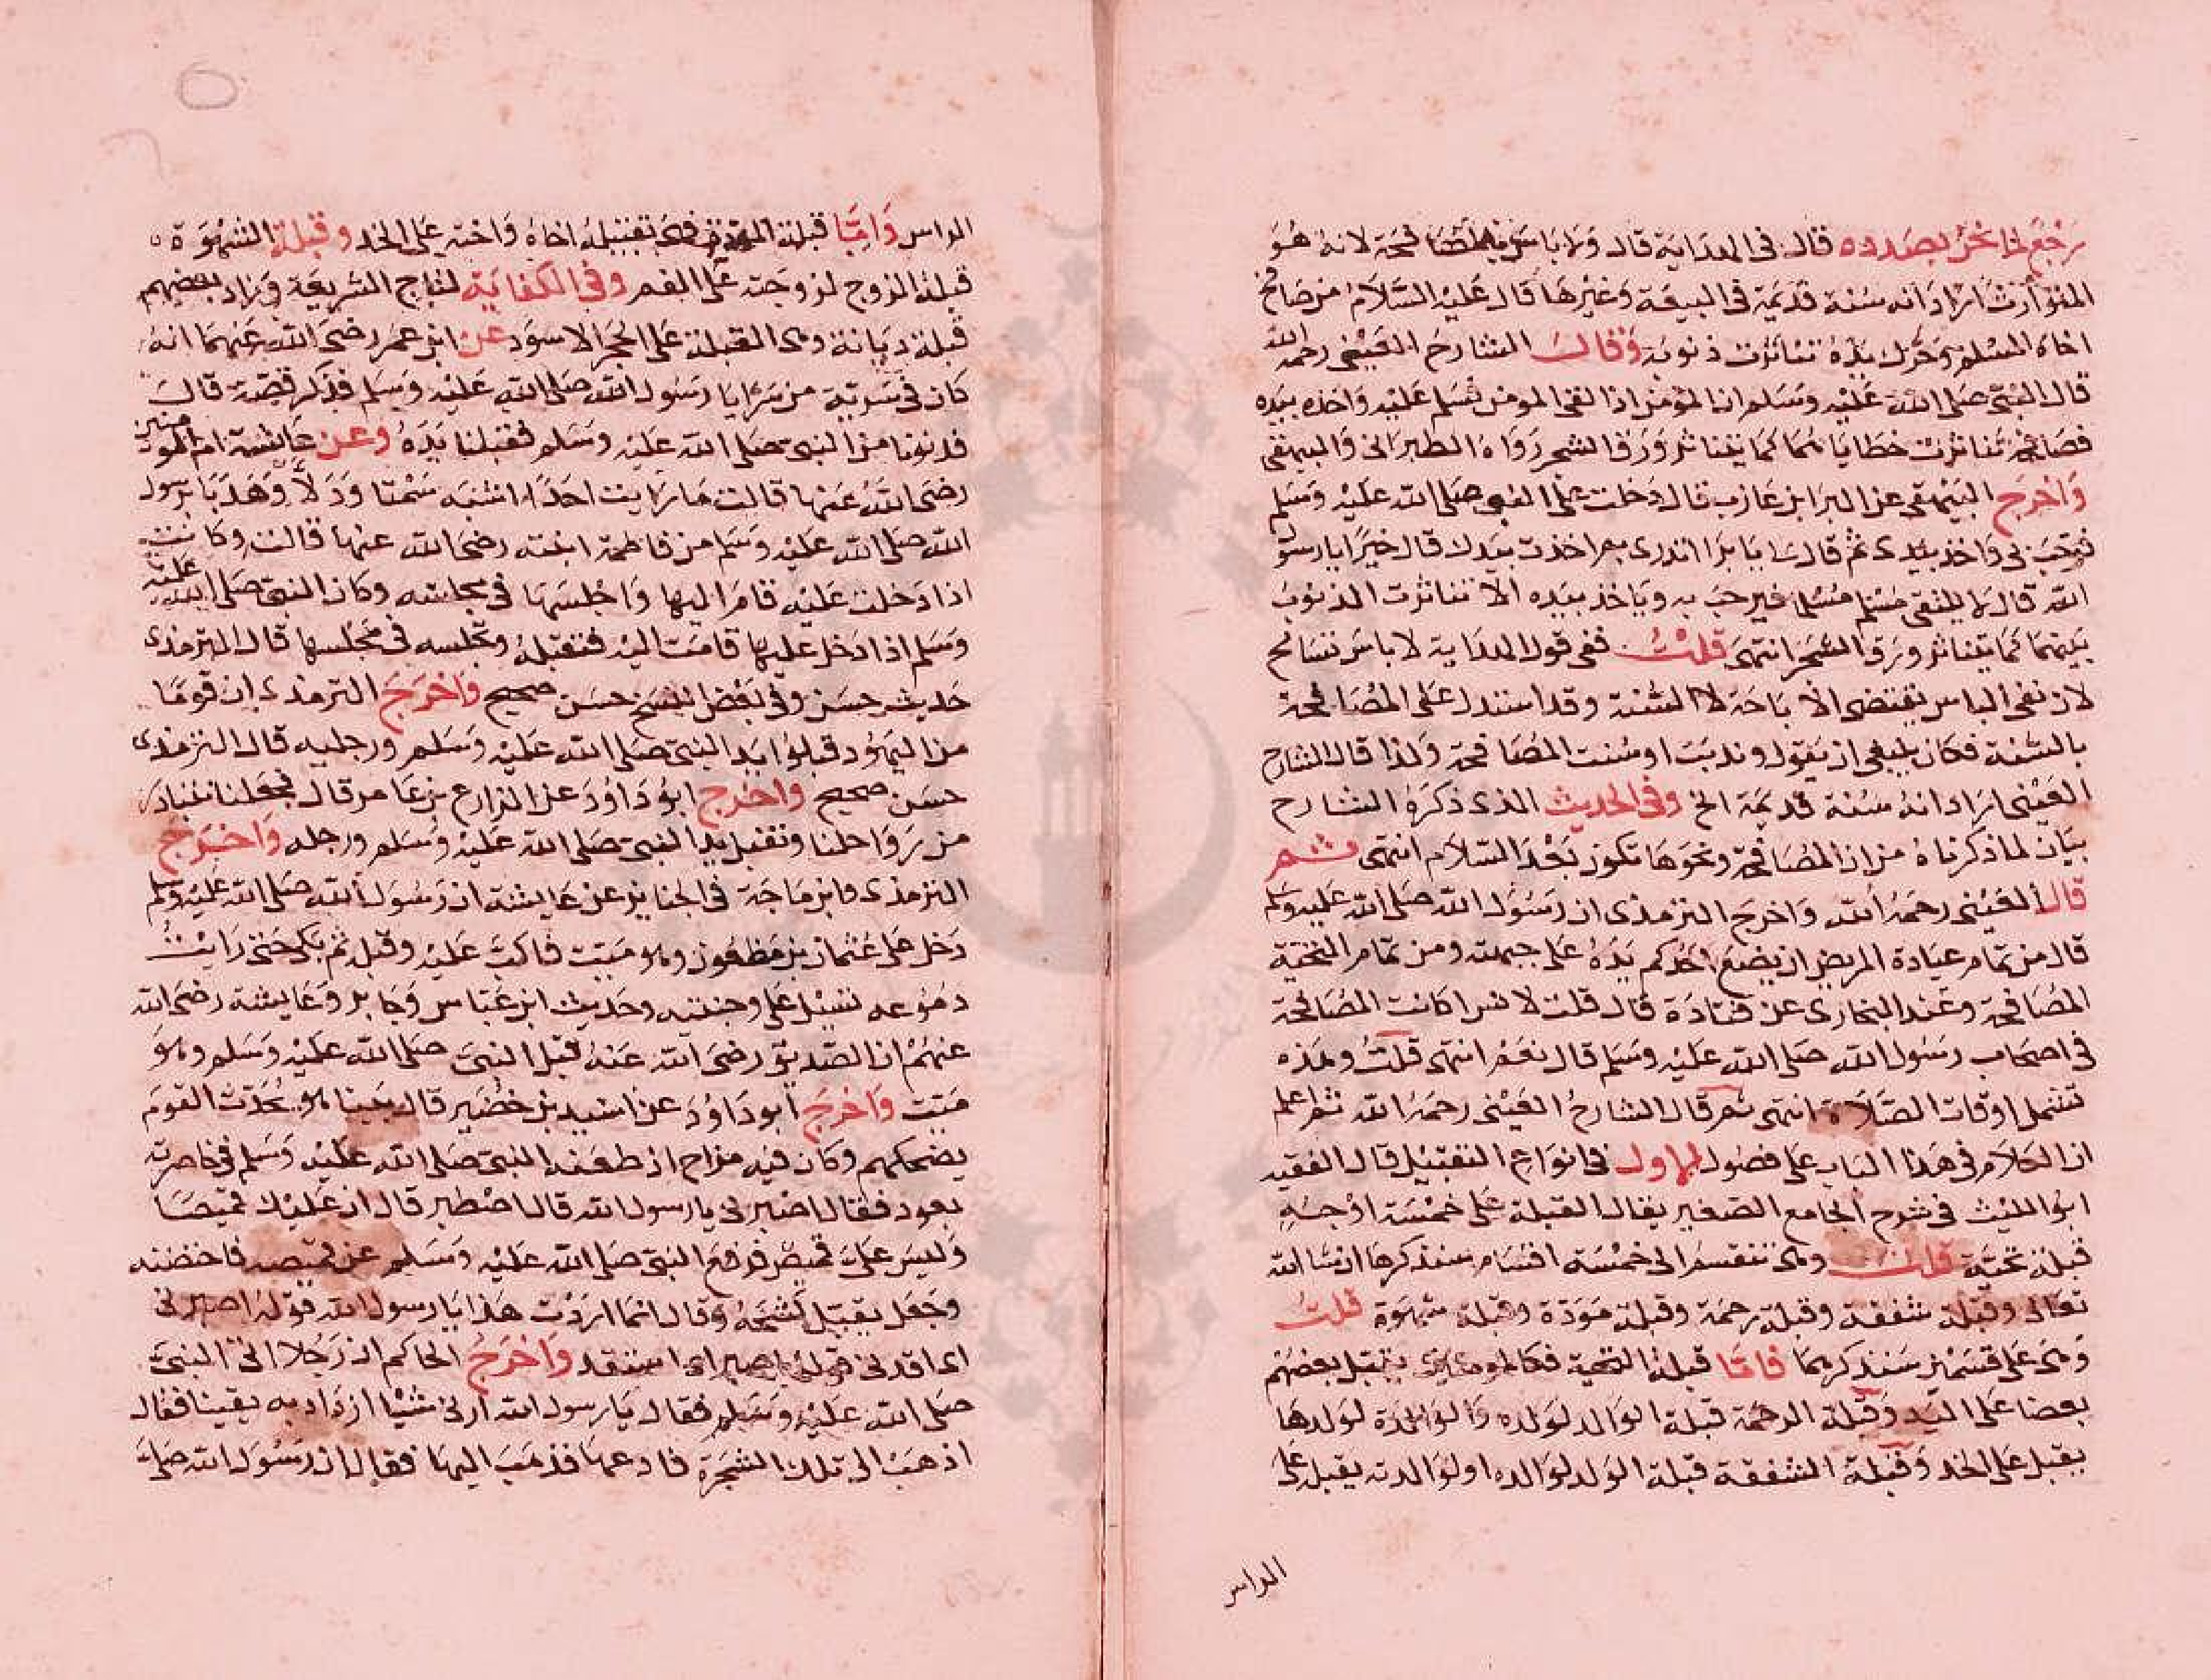 نرجع لما نحن بصدده قال في الهداية قال ولا باس بالمصافحة لانه هو
المتوارث اراد انه سنة قديمة في البيعة وغيرها قال عليه السلام من صافح
اخاه المسلم وحرك يده تناثرت ذنوبه وقال الشارح العيني رحمه الله
قال النبي صلى الله عليه وسلم ان المؤمن اذا لقى المومن فسلم عليه واخذه بيده
فصافحه تناثرت خطاياهما كما يتناثر ورق الشجر رواه الطبراني والبيهقي
واخرج البيهقي عن البرا بن عازب قال دخلت على النبي صلى الله عليه وسلم
فرحب بي واخذ بيدي ثم قال يا برا اتدري بم اخذت بيدك قال خيرا يا رسول
الله قال لا يلتقى مسلم مسلما فيرحب به وياخذ بيده الا تناثرت الذنوب
بينهما كما يتناثر ورق الشجر انتهى قلت ففي قول الهداية لا باس تسامح
لان نفي الباس يقتضي الاباحة لا السنة وقد استدل على المصافحة
بالسنة فكان ينبغي ان يقول وندبت او سنت المصافحة ولذا قال الشارح
العيني اراد انه سنة قديمة الخ وفي الحديث الذي ذكره الشارح
بيان لما ذكرناه من ان المصافحة ونحوها تكون بعد السلام انتهى ثم
قال العيني رحمه الله واخرج الترمذي ان رسول الله صلى الله عليه وسلم
قال من تمام عيادة المريض ان يضع احدكم يده على جبهته ومن تمام التحية
المصافحة وعند البخاري عن قتادة قال قلت لانس اكانت المصافحة
في اصحاب رسول الله صلى الله عليه وسلم قال نعم انتهى قلت وهذه
تشمل اوقات الصلاة انتهى ثم قال الشارح العيني رحمه الله ثم اعلم
ان الكلام في هذا الباب على فصول الاول في انواع التقبيل قال الفقيه
ابو الليث في شرح الجامع الصغير يقال القبلة على خمسة اوجه
قبلة تحية قلت وهي تنقسم الى خمسة اقسام سنذكرها ان شا الله
تعالى وقبلة شفقة وقبلة رحمة وقبلة مودة وقبلة شهوة قلت
وهي على قسمين سنذكرهما فاما قبلة التحية فكالمومنين يقبل بعضهم
بعضا على اليد وقبلة الرحمة قبلة الوالد لولده والوالدة لولدها
يقبل على الخد وقبلة الشفقة قبلة الولد لوالده او لوالدته يقبل على
الراس
الراس واما قبلة المودة فهي تقبيله اخاه واخته على الخد وقبلة الشهوة
قبلة الزوج لزوجته على الفم وفي الكفاية لتاج الشريعة وزاد بعضهم
قبلة ديانة وهي القبلة على الحجر الاسود عن ابن عمر رضي الله عنهما انه
كان في سرية من سرايا رسول الله صلى الله عليه وسلم فذكر قصة قال
فدنونا من النبي صلى الله عليه وسلم فقبلنا يده وعن عائشة ام المومنين
رضي الله عنها قالت ما رايت احدا اشبه سمتا ودلا وهديا برسول
الله صلى الله عليه وسلم من فاطمة ابنته رضي الله عنها قالت وكانت
اذا دخلت عليه قام اليها واجلسها في مجلسه وكان النبي صلى الله عليه
وسلم اذا دخل عليها قامت اليه فتقبله وتجلسه في مجلسها قال الترمذي
حديث حسن وفي بعض النسخ حسن صحيح واخرج الترمذي ان قوما
من اليهود قبلوا يد النبي صلى الله عليه وسلم ورجليه قال الترمذي
حسن صحيح واخرج ابو داود عن الزارع بن عامر قال فجعلنا نتبادر
من رواحلنا ونقبل يد النبي صلى الله عليه وسلم ورجله واخرج
الترمذي وابن ماجة في الجنايز عن عايشة ان رسول الله صلى الله عليه وسلم
دخل على عثمان بن مظعون وهو ميت فاكب عليه وقبله ثم بكى حتى رايت
دموعه تسيل على وجنتيه وحديث ابن عباس وجابر وعايشة رضي الله
عنهم ان الصديق رضي الله عنه قبل النبي صلى الله عليه وسلم وهو
ميت واخرج ابو داود عن اسيد بن خضير قال بينا هو يحدث القوم
يضحكهم وكان فيه مزاح اذ طعنه النبي صلى الله عليه وسلم في خاصرته
بعود فقال اصبرني يا رسول الله قال اصطبر قال ان عليك قميصا
وليس علي قميص فرفع النبي صلى الله عليه وسلم عن قميصه فاحضنه
وجعل يقبل كشحه وقال انما اردت هذا يا رسول الله قوله اصبرني
اى اقدني قوله اصبر اى استقد واخرج الحاكم ان رجلا اتى النبي
صلى الله عليه وسلم فقال يا رسول الله ارني شيئا ازداد به يقينا فقال
اذهب الى تلك الشجرة فادعها فذهب اليها فقال ان رسول الله صلى